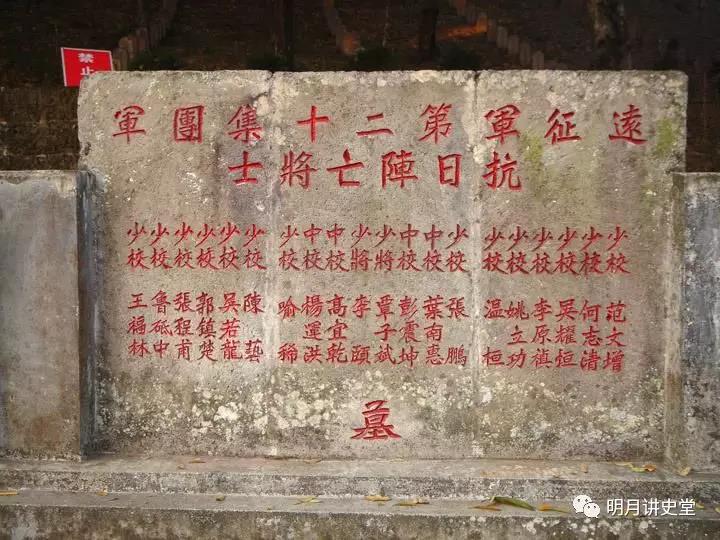 禁止
遠征軍第二十集團軍
抗日陣亡將士
少校 范文增
少校 何志清
少校 吳耀恒
少校 李原禛
少校 姚立功
少校 温桓
少校 張鵬
中校 葉南惠
中校 彭震坤
少將 覃子斌
少將 李頤
中校 高宜乾
中校 楊運洪
少校 喻稀
少校 陳藝
少校 吳若龍
少校 郭鎮楚
少校 張程甫
少校 魯砥中
少校 王福林
墓
明月讲史堂